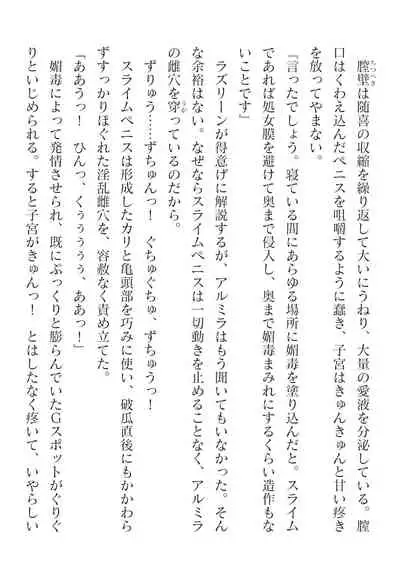 膣壁は随喜の収縮を繰り返して大いにうねり、大量の愛液を分泌している。膣
ちつへき
口はくわえ込んだペニスを咀嚼するように蠢き、子宮はきゅんきゅんと甘い疼き
を放ってやまない。
『言ったでしょう。寝ている間にあらゆる場所に媚毒を塗り込んだと。スライム
であれば処女膜を避けて奥まで侵入し、奥まで媚毒まみれにするくらい造作もな
いことです』
ラズリーンが得意げに解説するが、アルミラはもう聞いてもいなかった。そん
な余裕はない。なぜならスライムペニスは一切動きを止めることなく、アルミラ
の雌穴を穿っているのだから。
うが
ずりゅう……ずちゅんっ！　ぐちゅぐちゅ、ずちゅうっ！
スライムペニスは形成したカリと亀頭部を巧みに使い、破瓜直後にもかかわら
ずすっかりほぐれた淫乱雌穴を、容赦なく責め立てた。
「ああうっ！　ひんっ、くぅぅぅぅぅ、ああっ！」
媚毒によって発情させられ、既にぷっくりと膨らんでいたＧスポットがぐりぐ
りといじめられる。すると子宮がきゅんっ！　とはしたなく疼いて、いやらしい